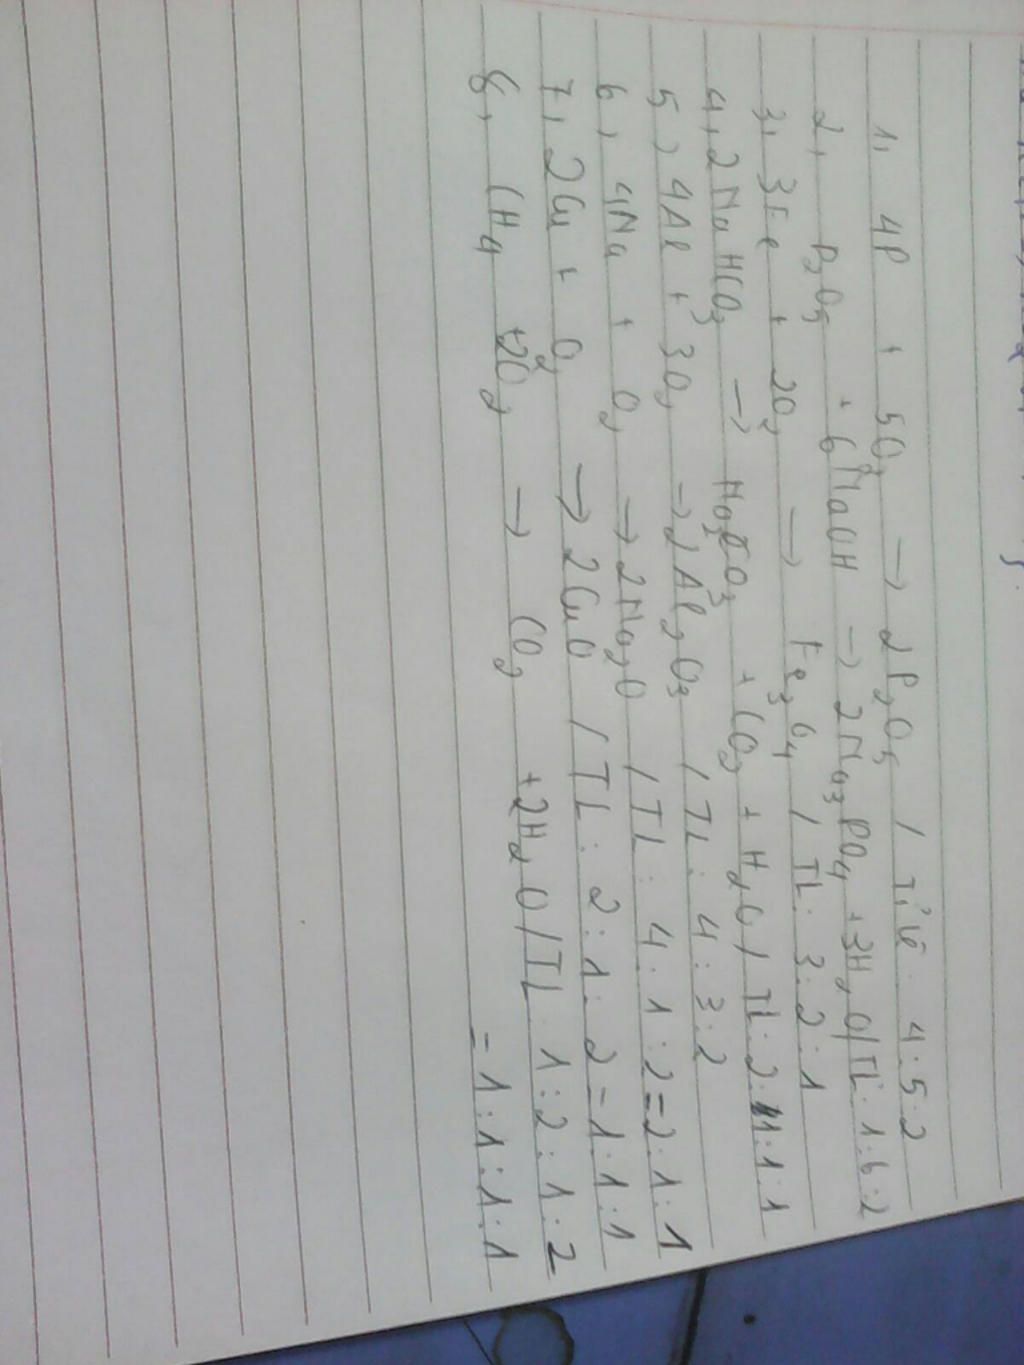 1, 4P + 5O2 → 2P2O5 / Tỉ lệ: 4:5:2
2, P2O5 + 6NaOH → 2Na3PO4 + 3H2O / TL: 1:6:2
3, 3Fe + 2O2 → Fe3O4 / TL: 3:2:1
4, 2NaHCO3 → Na2CO3 + CO2 + H2O / TL: 2:1:1:1
5, 4Al + 3O2 → 2Al2O3 / TL: 4:3:2
6, 4Na + O2 → 2Na2O / TL: 4:1:2 = 2:1:1
7, 2Cu + O2 → 2CuO / TL: 2:1:2 = 1:1:1
8, CH4 + 2O2 → CO2 + 2H2O / TL: 1:2:1:2
= 1:1:1:1